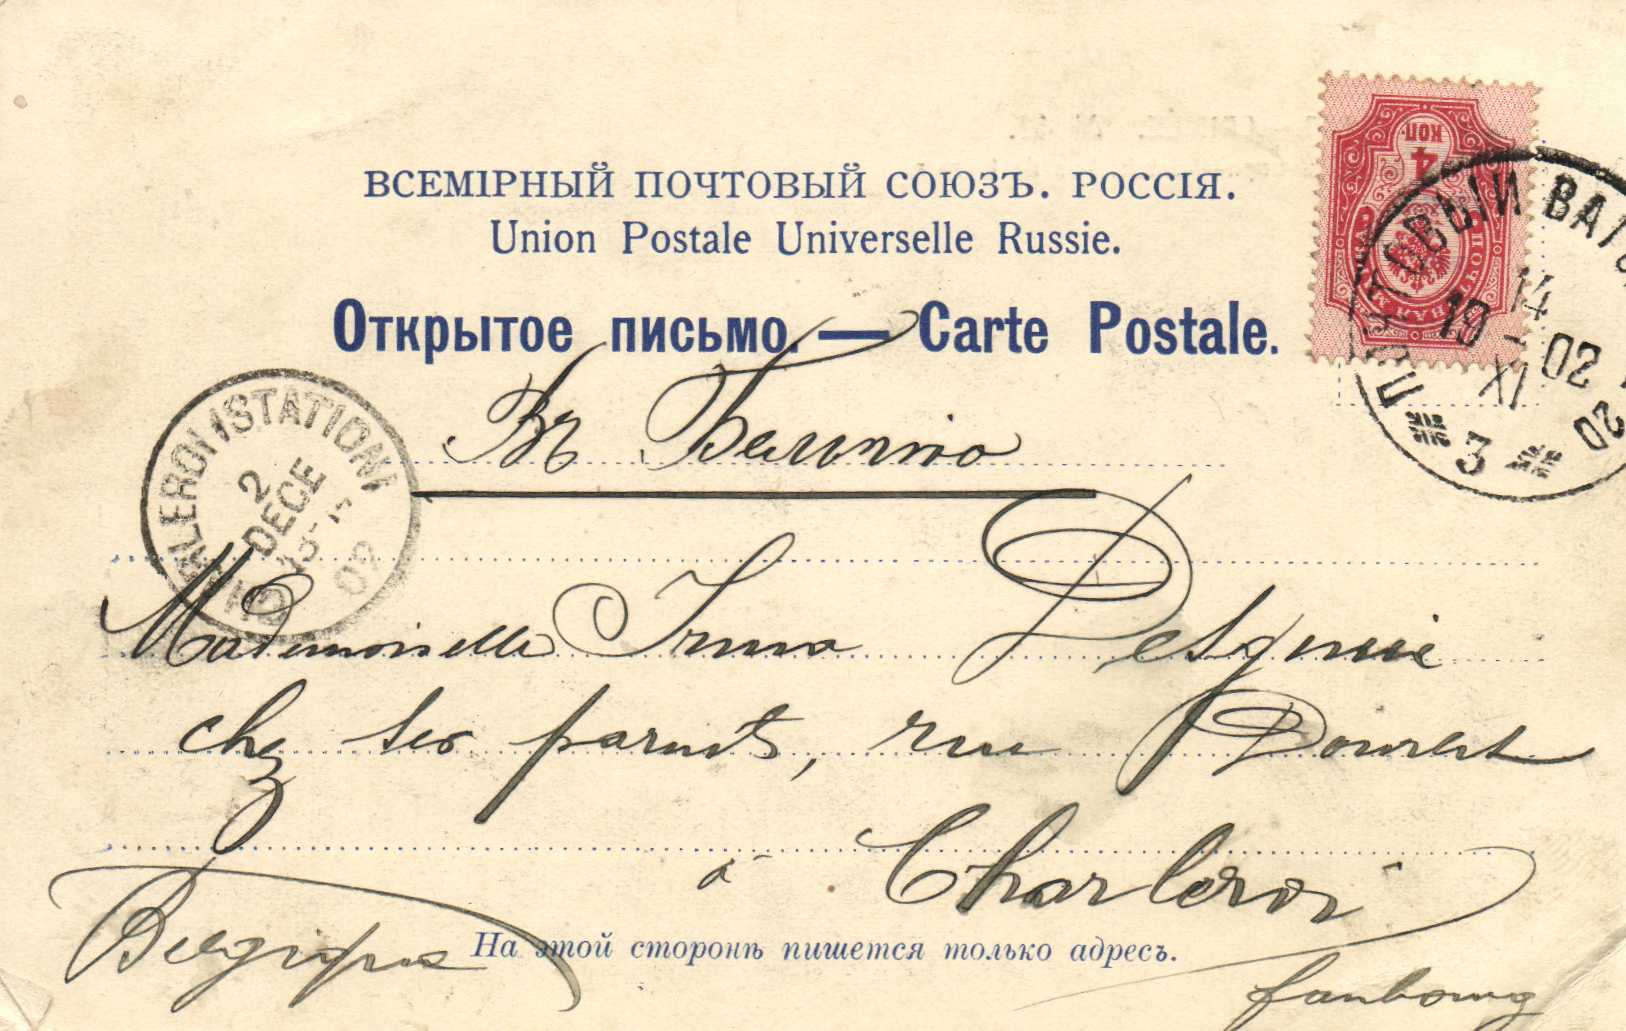 ВСЕМІРНЫЙ ПОЧТОВЫЙ СОЮЗЪ. РОССІЯ.
Union Postale Universelle Russie.
Открытое письмо. — Carte Postale.
4
КОП
ПОЧТОВЫЙ ВАГОН
14
19 XI 02
02
3
CHARLEROI (STATION)
2
DECE
02
Въ Бельгію
Mademoiselle Irma
chez ses parents, rue
à Charleroi
Belgique
faubourg
На этой сторонѣ пишется только адресъ.